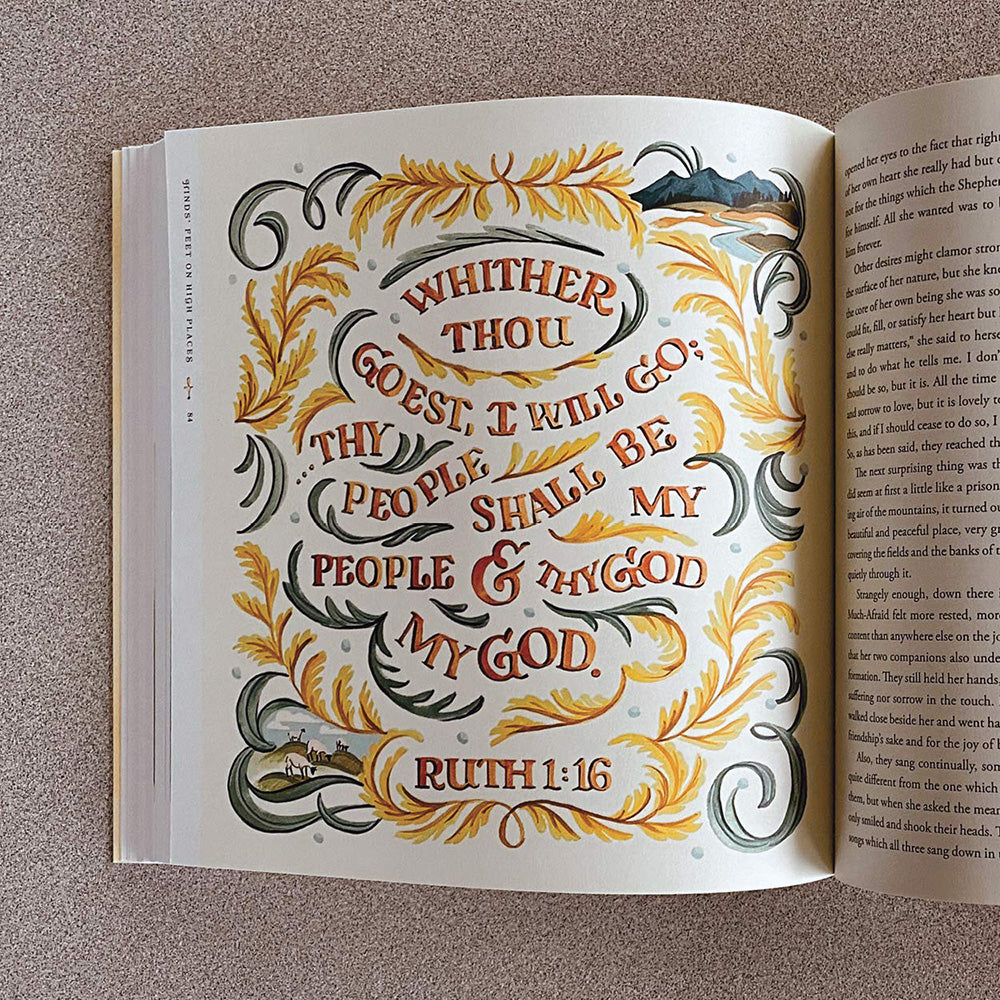 HINDS' FEET ON HIGH PLACES
84
WHITHER
THOU
GOEST, I WILL GO;
THY
PEOPLE SHALL BE
MY
PEOPLE & THY GOD
MY GOD.
RUTH 1:16
opened her eyes to the fact that right
of her own heart she really had but
not for the things which the Shepher
for himself. All she wanted was to
him forever.
Other desires might clamor stron
the surface of her nature, but she kne
the core of her own being she was so
could fit, fill, or satisfy her heart but
else really matters," she said to herse
and to do what he tells me. I don'
should be so, but it is. All the time
and sorrow to love, but it is lovely to
this, and if I should cease to do so, I
So, as has been said, they reached th
The next surprising thing was th
did seem at first a little like a prison
ing air of the mountains, it turned ou
beautiful and peaceful place, very g
covering the fields and the banks of t
quietly through it.
Strangely enough, down there i
Much-Afraid felt more rested, mor
content than anywhere else on the jo
that her two companions also unde
formation. They still held her hands,
suffering nor sorrow in the touch.
walked close beside her and went ha
friendship's sake and for the joy of b
Also, they sang continually, som
quite different from the one which
them, but when she asked the mean
only smiled and shook their heads. T
songs which all three sang down in